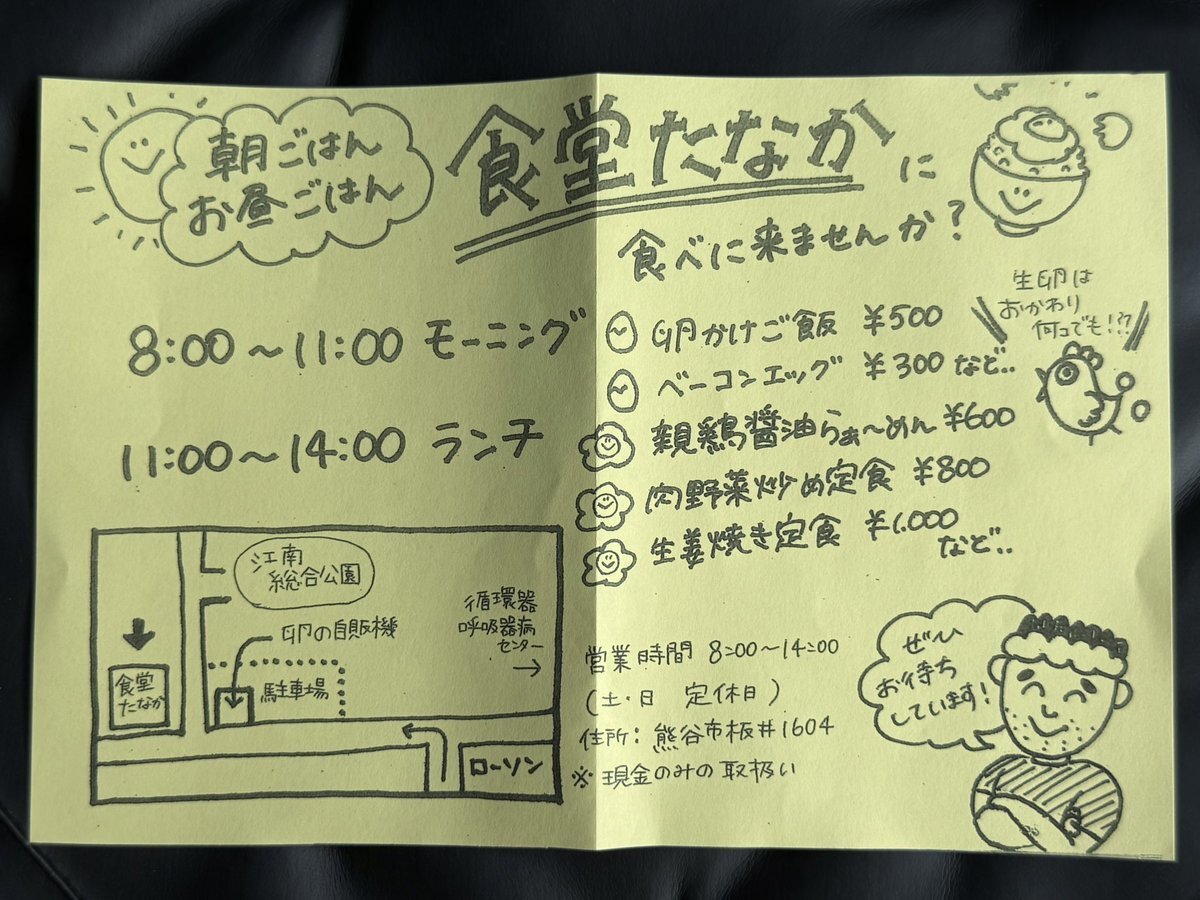 朝ごはん
お昼ごはん
食堂たなかに
食べに来ませんか?
8:00〜11:00 モーニング
11:00〜14:00 ランチ
生卵は
おかわり
何コでも!??
卵かけご飯 ¥500
ベーコンエッグ ¥300 など..
親鶏醤油らぁ〜めん ¥600
肉野菜炒め定食 ¥800
生姜焼き定食 ¥1.000
など..
江南
総合公園
卵の自販機
循環器
呼吸器病
センター
→
食堂
たなか
駐車場
ローソン
営業時間 8:00〜14:00
(土・日 定休日)
住所:熊谷市板井1604
※現金のみの取扱い
ぜひ
お待ち
しています!